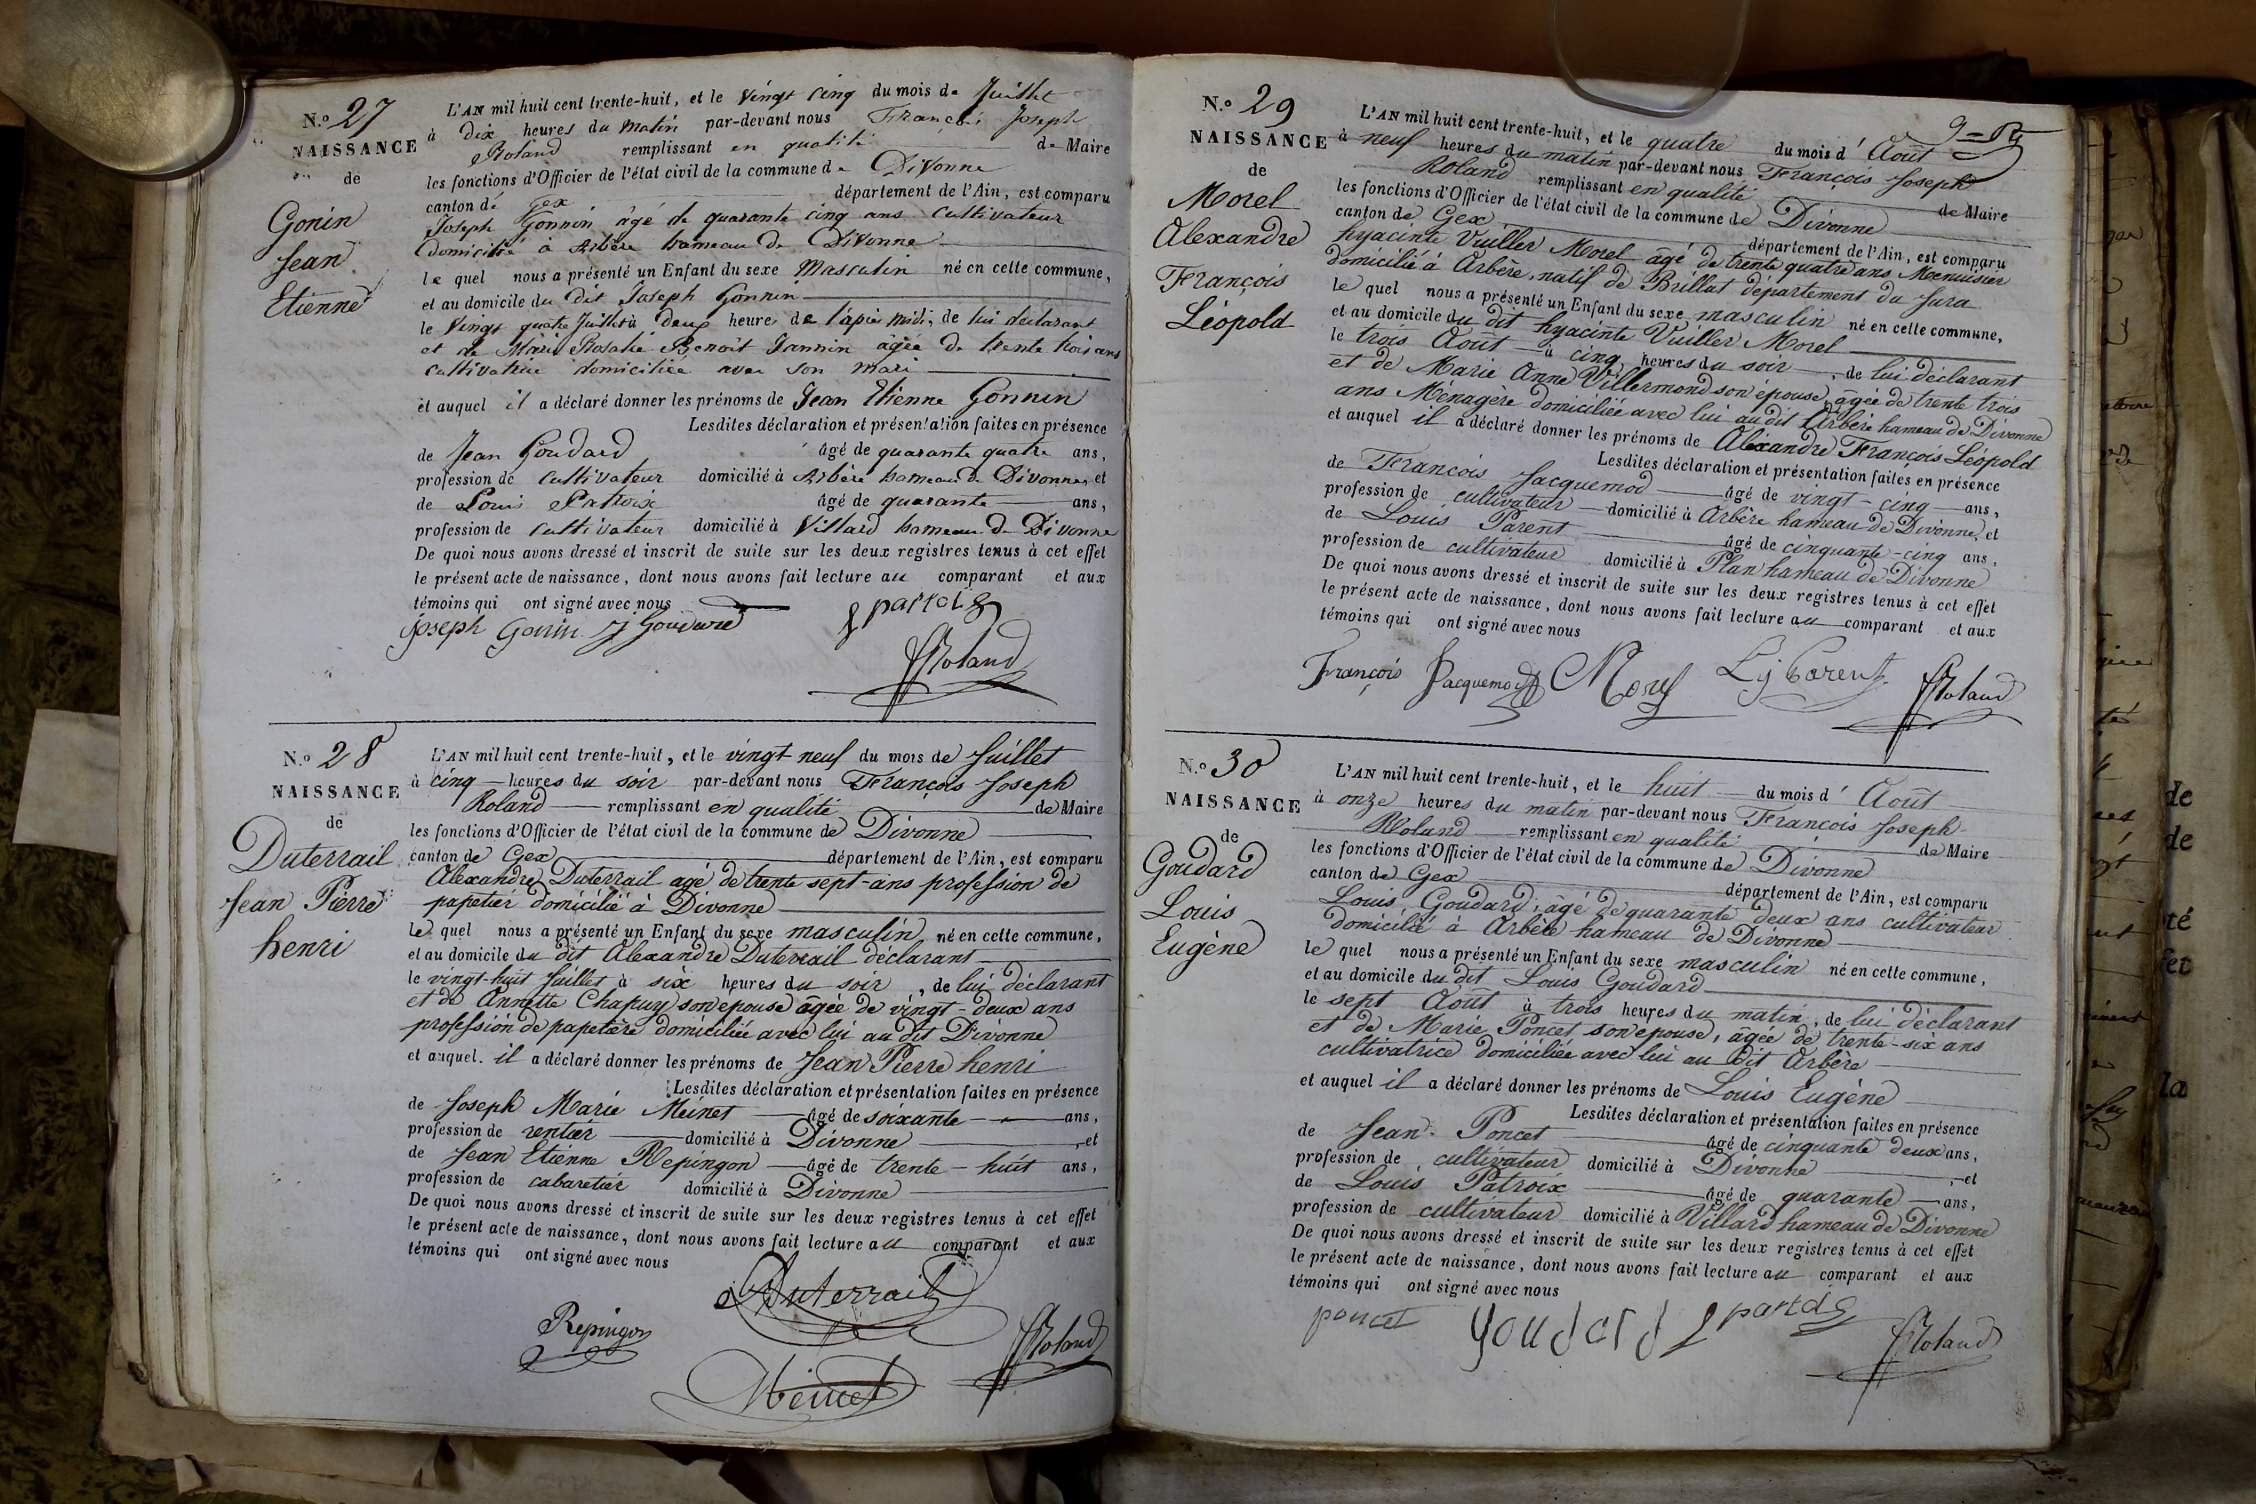 N.º 27
NAISSANCE
de
Gonin
Jean
Etienne
L'AN mil huit cent trente-huit, et le vingt cinq du mois de Juillet
à dix heures du matin par-devant nous François Joseph
Roland remplissant en qualité de Maire
les fonctions d'Officier de l'état civil de la commune de Divonne
canton de Gex département de l'Ain, est comparu
Joseph Gonnin âgé de quarante cinq ans cultivateur
domicilié à Arbère hameau de Divonne
le quel nous a présenté un Enfant du sexe Masculin né en cette commune,
et au domicile du dit Joseph Gonnin
le vingt quatre Juillet à deux heures de l'après midi, de lui déclarant
et de Marie Rosalie Benoit Jannin agée de trente trois ans
cultivatrice domiciliée avec son mari
et auquel il a déclaré donner les prénoms de Jean Etienne Gonnin
Lesdites déclaration et présentation faites en présence
de Jean Goudard âgé de quarante quatre ans,
profession de cultivateur domicilié à Arbère hameau de Divonne, et
de Louis Patroix âgé de quarante ans,
profession de cultivateur domicilié à Villard hameau de Divonne
De quoi nous avons dressé et inscrit de suite sur les deux registres tenus à cet effet
le présent acte de naissance, dont nous avons fait lecture au comparant et aux
témoins qui ont signé avec nous
Joseph Gonin J Goudard
Roland
N.º 28
NAISSANCE
de
Duterrail
Jean Pierre
henri
L'AN mil huit cent trente-huit, et le vingt neuf du mois de Juillet
à cinq heures du soir par-devant nous François Joseph
Roland remplissant en qualité de Maire
les fonctions d'Officier de l'état civil de la commune de Divonne
canton de Gex département de l'Ain, est comparu
Alexandre Duterrail agé de trente sept ans profession de
papetier domicilié à Divonne
le quel nous a présenté un Enfant du sexe masculin, né en cette commune,
et au domicile du dit Alexandre Duterrail déclarant
le vingt-huit Juillet à six heures du soir, de lui déclarant
et de Annette Chapuy son epouse âgée de vingt-deux ans
profession de papetère domiciliée avec lui au dit Divonne
et auquel. il a déclaré donner les prénoms de Jean Pierre henri
Lesdites déclaration et présentation faites en présence
de Joseph Marie Meinet âgé de soixante ans,
profession de rentier domicilié à Divonne, et
de Jean Etienne Repingon âgé de trente-huit ans,
profession de cabaretier domicilié à Divonne
De quoi nous avons dressé et inscrit de suite sur les deux registres tenus à cet effet
le présent acte de naissance, dont nous avons fait lecture au comparant et aux
témoins qui ont signé avec nous
Duterrail
Repingon
Roland
Meinet
9
N.º 29
NAISSANCE
de
Morel
Alexandre
François
Léopold
L'AN mil huit cent trente-huit, et le quatre du mois d'Août
à neuf heures du matin par-devant nous François Joseph
Roland remplissant en qualité de Maire
les fonctions d'Officier de l'état civil de la commune de Divonne
canton de Gex département de l'Ain, est comparu
hyacinte Vuiller Morel âgé de trente quatre ans Menuisier
domicilié à Arbère, natif de Brillat département du Jura
le quel nous a présenté un Enfant du sexe masculin né en cette commune,
et au domicile du dit hyacinte Vuiller Morel
le trois Août à cinq heures du soir, de lui déclarant
et de Marie Anne Villermond son épouse, agée de trente trois
ans Ménagère domiciliée avec lui au dit Arbère hameau de Divonne
et auquel il a déclaré donner les prénoms de Aléxandre François Léopold
Lesdites déclaration et présentation faites en présence
de François Jacquemod âgé de vingt-cinq ans,
profession de cultivateur domicilié à Arbère hameau de Divonne, et
de Louis Parent âgé de cinquante-cinq ans,
profession de cultivateur domicilié à Plan hameau de Divonne
De quoi nous avons dressé et inscrit de suite sur les deux registres tenus à cet effet
le présent acte de naissance, dont nous avons fait lecture au comparant et aux
témoins qui ont signé avec nous
François Jacquemod Morel Parent Roland
N.º 30
NAISSANCE
de
Goudard
Louis
Eugène
L'AN mil huit cent trente-huit, et le huit du mois d'Août
à onze heures du matin par-devant nous François Joseph
Roland remplissant en qualité de Maire
les fonctions d'Officier de l'état civil de la commune de Divonne
canton de Gex département de l'Ain, est comparu
Louis Goudard, âgé de quarante deux ans cultivateur
domicilié à Arbère hameau de Divonne
le quel nous a présenté un Enfant du sexe masculin né en cette commune,
et au domicile du dit Louis Goudard
le sept Août à trois heures du matin, de lui déclarant
et de Marie Poncet son epouse, âgée de trente-six ans
cultivatrice domiciliée avec lui au dit Arbère
et auquel il a déclaré donner les prénoms de Louis Eugène
Lesdites déclaration et présentation faites en présence
de Jean Poncet âgé de cinquante deux ans,
profession de cultivateur domicilié à Divonne, et
de Louis Patroix âgé de quarante ans,
profession de cultivateur domicilié à Villard hameau de Divonne
De quoi nous avons dressé et inscrit de suite sur les deux registres tenus à cet effet
le présent acte de naissance, dont nous avons fait lecture au comparant et aux
témoins qui ont signé avec nous
poncet goudard Roland
de
de
té
fet
la